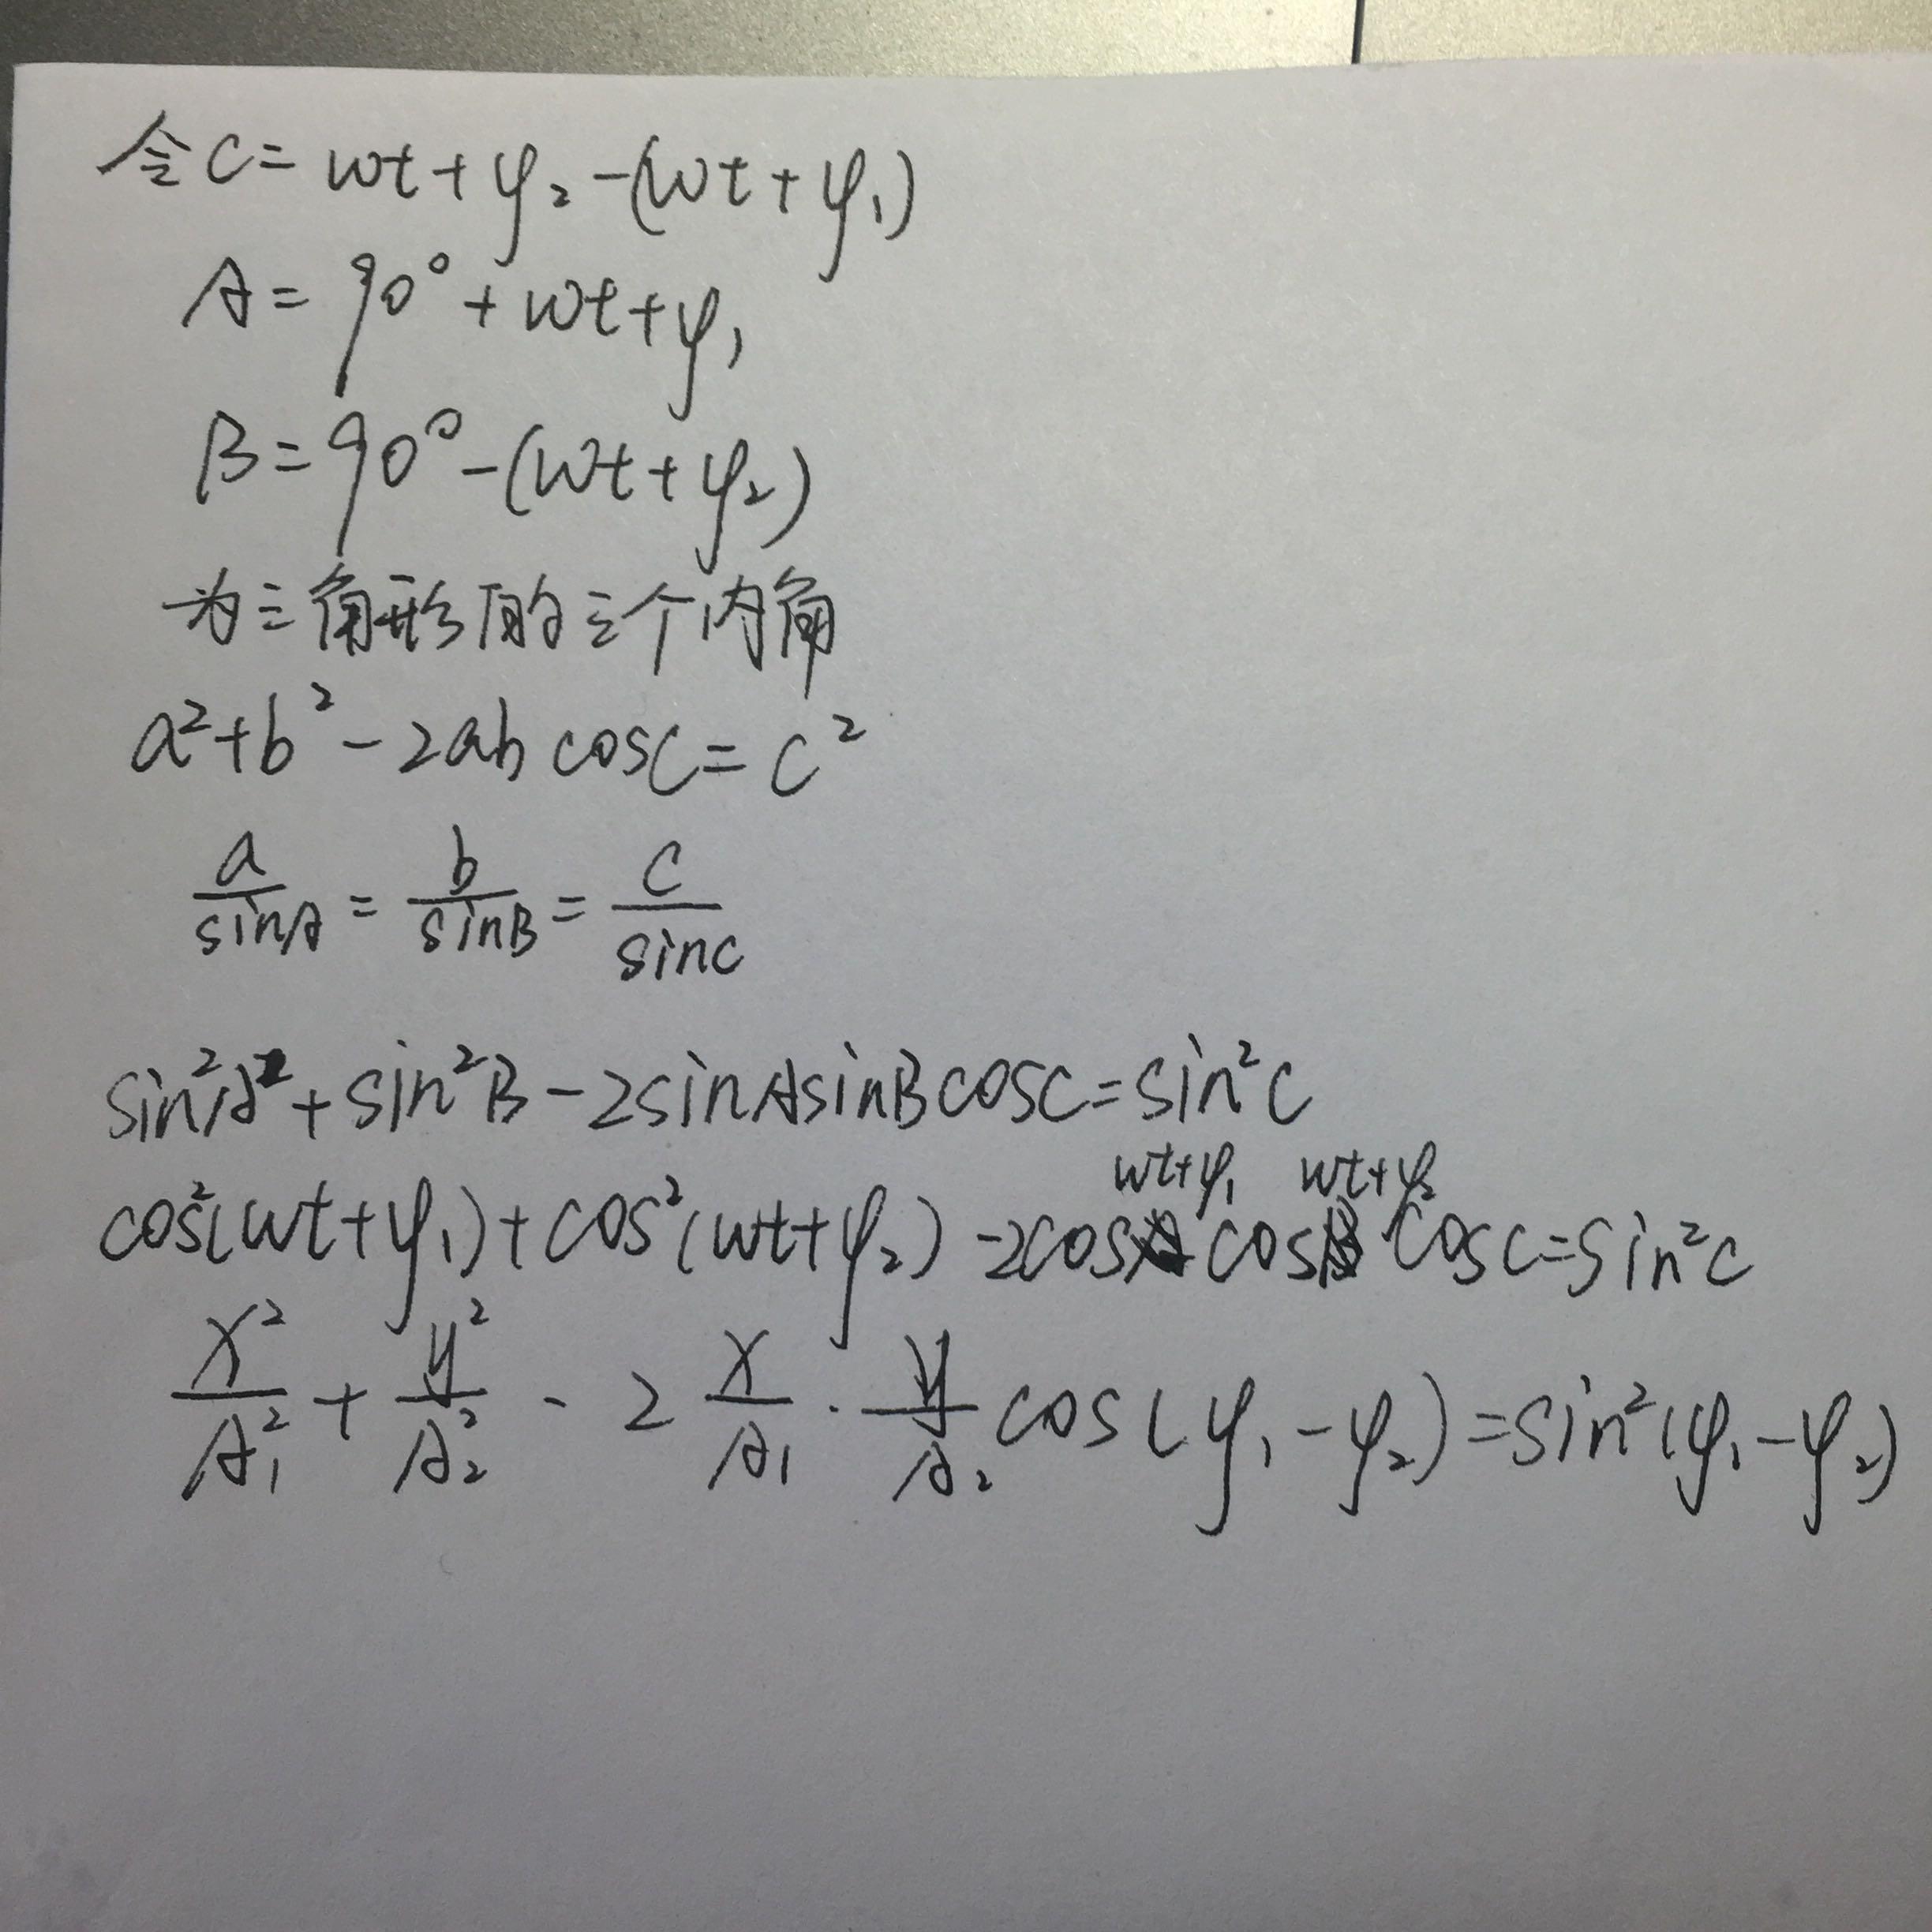 令C=wt+φ₂-(wt+φ₁)
A=90°+wt+φ₁
B=90°-(wt+φ₂)
为三角形的三个内角
a²+b²-2ab cosC=c²
a/sinA=b/sinB=c/sinC
sin²A+sin²B-2sinAsinBcosC=sin²C
cos²(wt+φ₁)+cos²(wt+φ₂)-2cos wt+φ₁ cos wt+φ₂ cosC=sin²C
x²/A₁²+y²/A₂²-2 x/A₁·y/A₂ cos(φ₁-φ₂)=sin²(φ₁-φ₂)